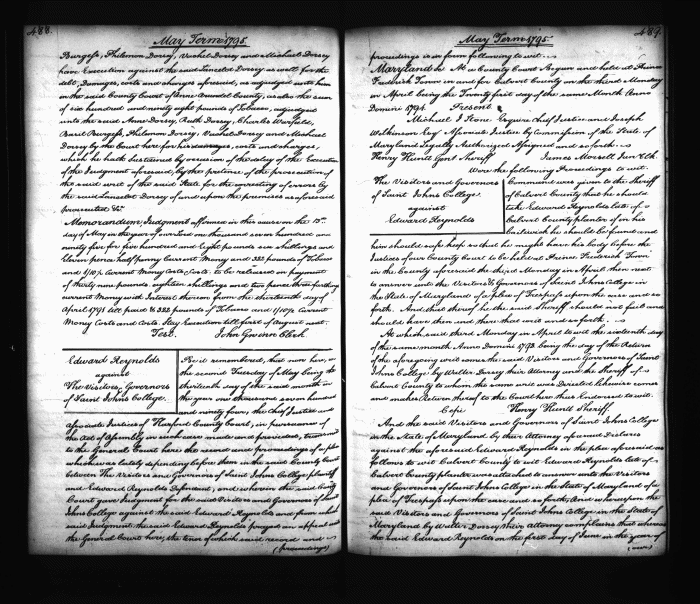 488.
May Term 1795.
Burgess, Philemon Dorsey, Vachel Dorsey and Michael Dorsey
have Execution against the said Lancelot Dorsey as well for the
debt, Damages, costs and charges aforesaid, as adjudged unto him
in the said County Court of Anne Arundel County, as also the sum
of six hundred and ninety eight pounds of Tobacco, adjudged
unto the said Anne Dorsey, Ruth Dorsey, Charles Warfield,
Basil Burgess, Philemon Dorsey, Vachel Dorsey and Michael
Dorsey by the Court here for his costs and charges,
which he hath Sustained by occasion of the delay of the Execution
of the Judgment aforesaid, by the pretence of the prosecution
of the said writ of the said State for the correcting of errors by
the said Lancelot Dorsey of and upon the premises as aforesaid
prosecuted &c.
Memorandum Judgment affirmed in this cause on the 15th.
day of May in the year of our Lord one thousand seven hundred and
ninety five for five hundred and Eight pounds six shillings and
Eleven pence half penny Current Money and 333 pounds of Tobacco
and 1/10½ Current Money Costs. Costs. to be released on payment
of thirty nine pounds eighteen shillings and two pence three farthings
current Money with Interest thereon from the thirteenth day of
April 1791 till paid & 333 pounds of Tobacco and 1/10½ Current
Money Costs and Costs. Stay Execution till first of August next.
Test. John Gwinn Clerk
Edward Reynolds
against
The Visitors, Governors
of Saint Johns College.
Be it remembered, that now here, on
the second Tuesday of May being the
thirteenth day of the said month in
the year one thousand seven hundred
and ninety four, the Chief Justice and
associate Justices of Harford County Court, in pursuance of
the Act of Assembly in such case made and provided, transmit
to the General Court here the record and proceedings of a plea
which was lately depending before them in the said County Court
between The Visitors and Governors of Saint Johns College plaintiff
and Edward Reynolds Defendant, and wherein the said County
Court gave Judgment for the said Visitors and Governors of Saint
Johns College against the said Edward Reynolds and from which
said Judgment the said Edward Reynolds prayed an appeal unto
the General Court here; the tenor of which said record and
(proceedings)
May Term 1795.
489.
proceedings is in form following to wit.
Maryland Sc. At a County Court begun and held at Prince
Frederick Town in and for Calvert County on the third Monday
in April being the Twenty first day of the same Month Anno
Domini 1794. Present
Michael J Stone Esquire Chief Justice and Joseph
Wilkinson Esqr. Associate Justice by Commission of the State of
Maryland legally Authorized Assigned and so forth.
Henry Huntt Gent. Sheriff James Morsell Jun. Clk.
Were the following Proceedings to wit.
The Visitors and Governors
of Saint Johns College
against
Edward Reynolds
Command was given to the Sheriff
of Calvert County that he should
take Edward Reynolds late of
Calvert County planter if in his
Bailiwick he should be found and
him should safe keep so that he might have his body before the
Justices of our County Court to be held at Prince Frederick Town
in the County aforesaid the third Monday in April then next
to answer unto the Visitors & Governors of Saint Johns College in
the State of Maryland of a plea of Trespass upon the case and so
forth. And that thereof he the said Sheriff should not fail and
should have then and there that writ and so forth.
At which said third Monday in April to wit the sixteenth day
of the same month Anno Domini 1792 being the day of the Return
of the aforegoing writ comes the said Visitors and Governors of Saint
Johns College by Walter Dorsey their Attorney and the Sheriff of
Calvert County to whom the same writ was Directed likewise comes
and makes Return thereof to the Court here thus Endorsed to wit.
Cepi Henry Huntt Sheriff.
And the said Visitors and Governors of Saint Johns College
in the State of Maryland by their Attorney aforesaid Declares
against the aforesaid Edward Reynolds in the plea aforesaid as
follows to wit Calvert County to wit Edward Reynolds late of
Calvert County planter was attached to answer unto the Visitors
and Governors of Saint Johns College in the State of Maryland of a
plea of Trespass upon the case and so forth, And whereupon the
said Visitors and Governors of Saint Johns College in the State of
Maryland by Walter Dorsey their Attorney complains that whereas
the said Edward Reynolds on the first Day of June in the year of